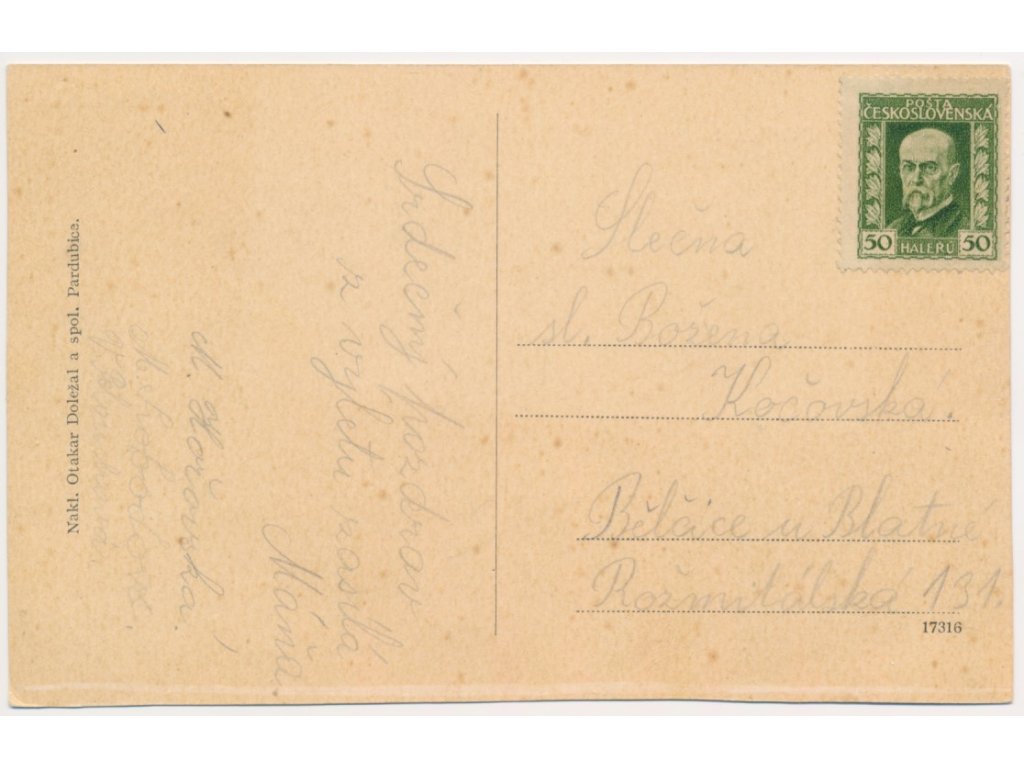 Nakl. Otakar Doležal a spol. Pardubice.
Srdečný pozdrav
z výletu zasílá
Máňa.
M. Kočovská.
POŠTA
ČESKOSLOVENSKÁ
50 HALÉŘŮ 50
Slečna
sl. Božena
Kočovská.
Bělčice u Blatné
Rožmitálská 131.
17316